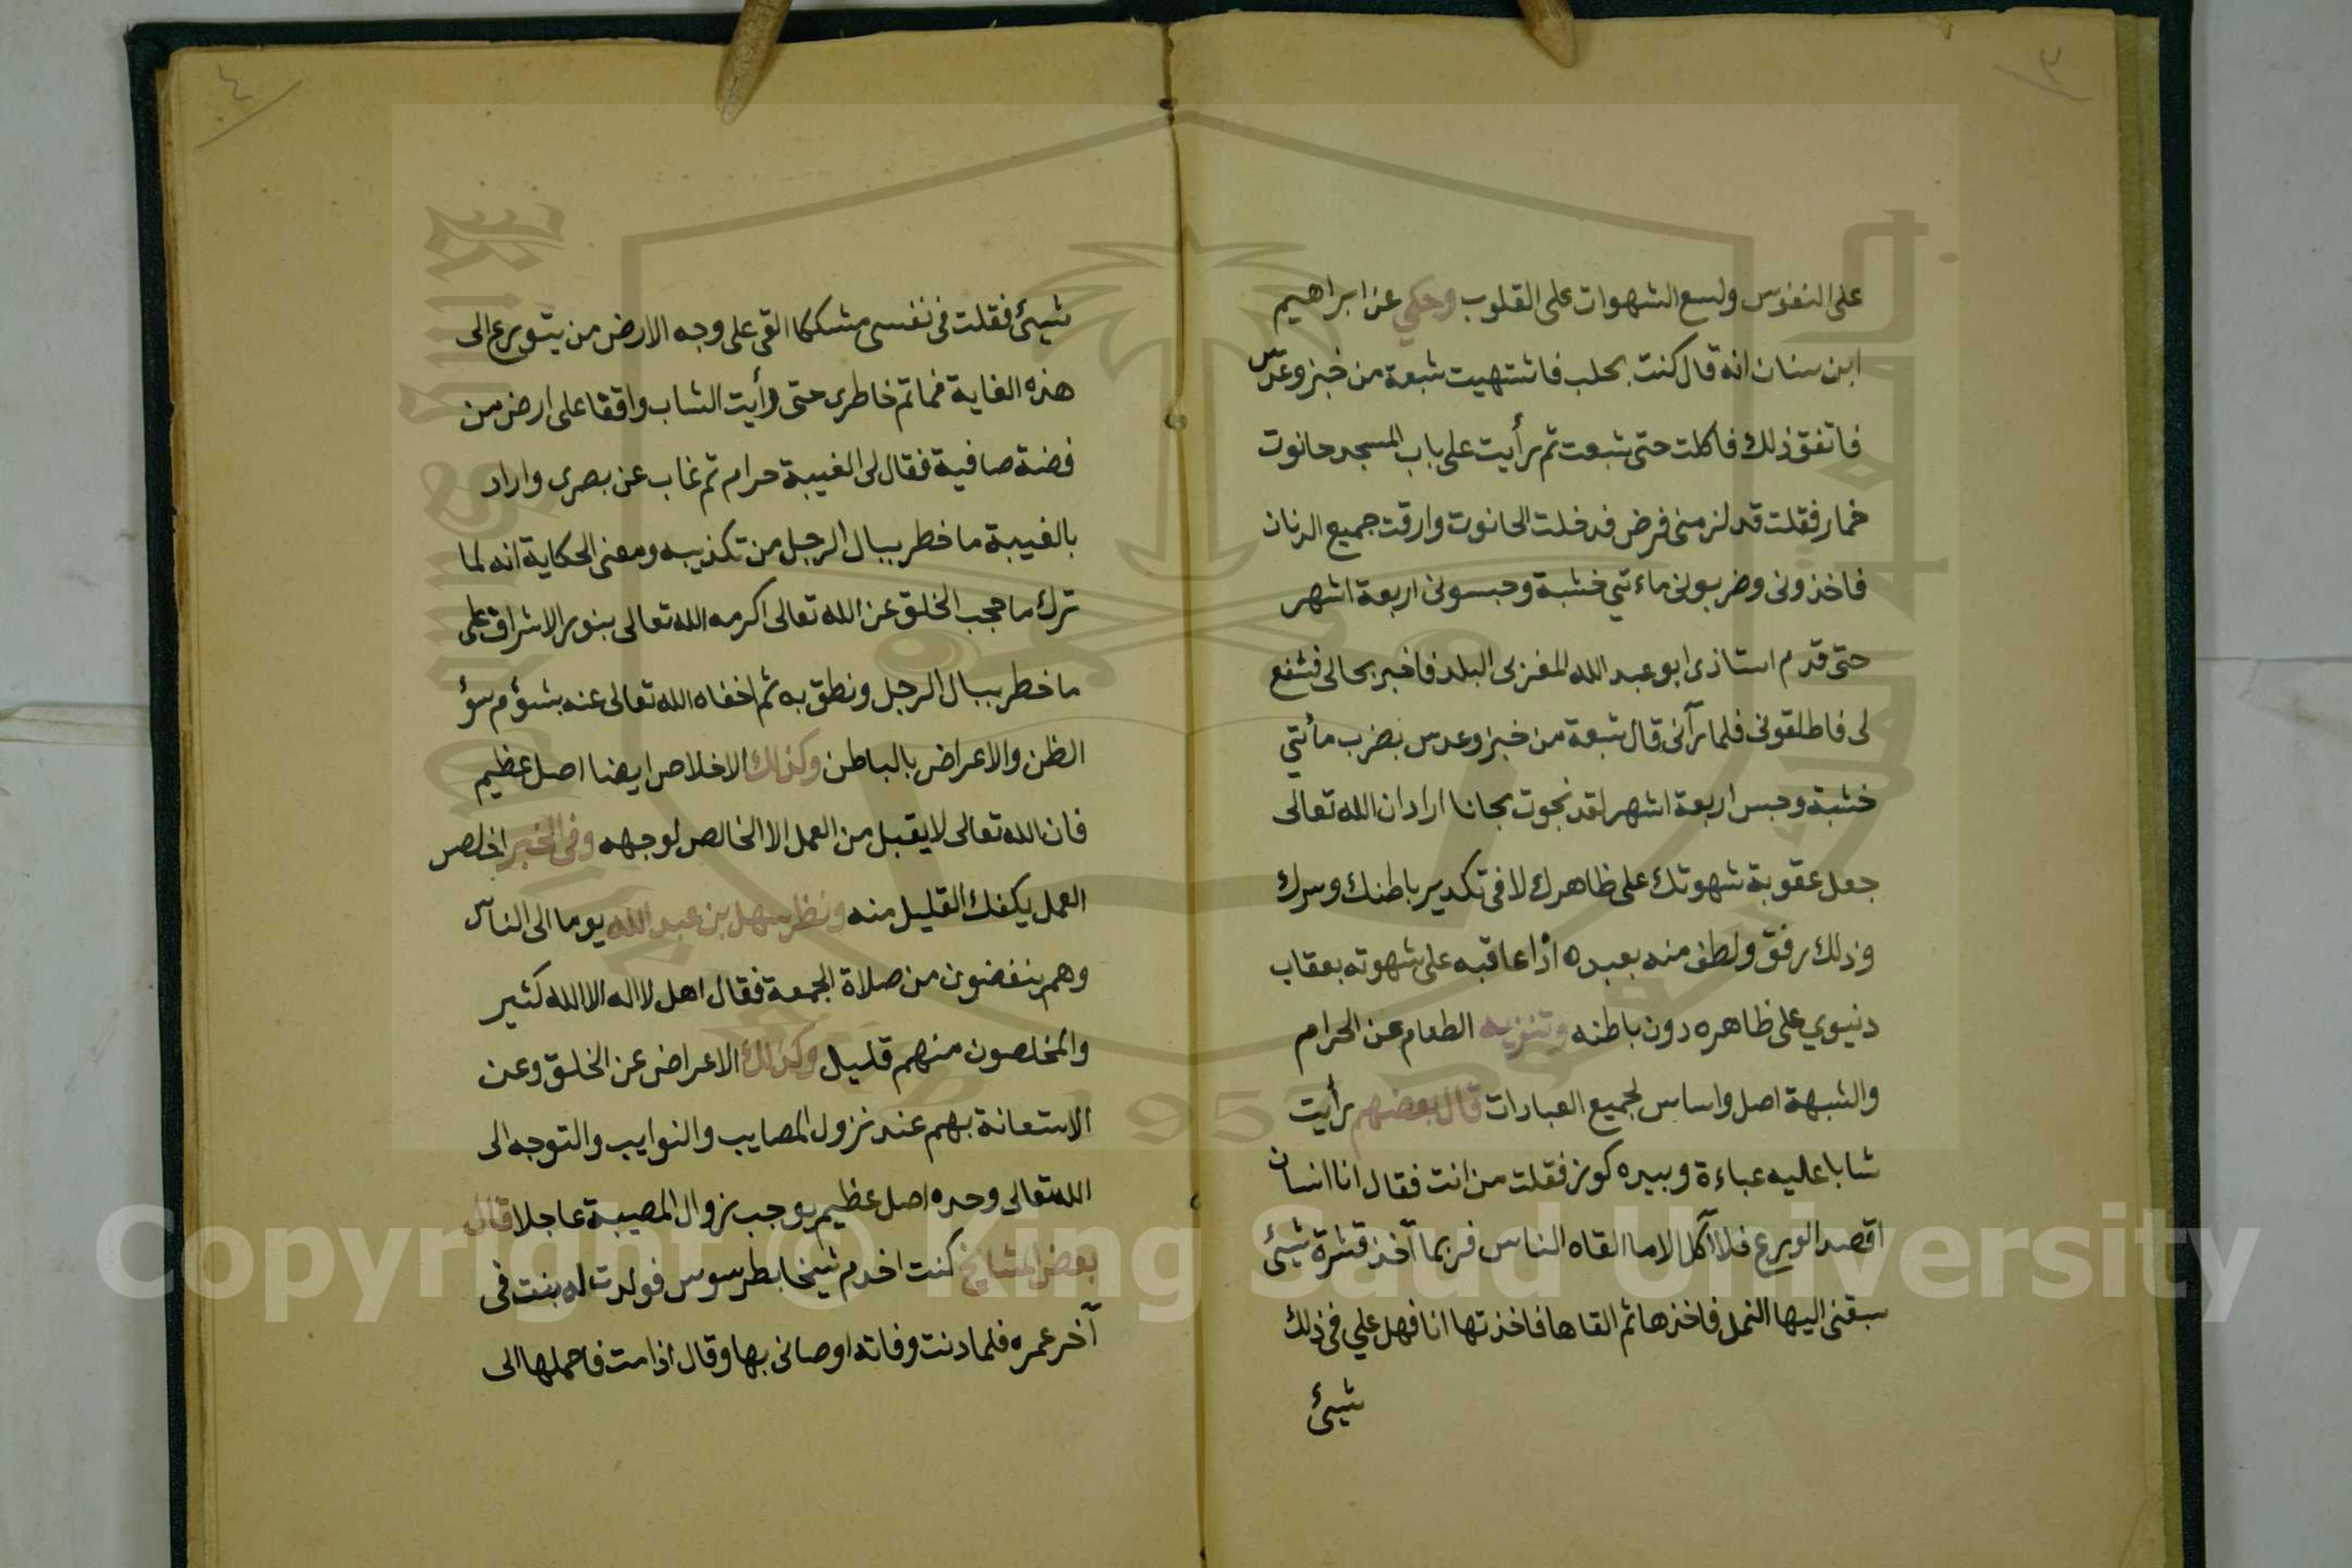 ٣
على النفوس ولسع الشهوات على القلوب وحكي عن ابراهيم
ابن سنان انه قال كنت بحلب فاشتهيت شبعة من خبز وعدس
فاتفق ذلك فاكلت حتى شبعت ثم رأيت على باب المسجد حانوت
خمار فقلت قد لزمنى فرض فدخلت الحانوت وارقت جميع الدنان
فاخذونى وضربونى ماءتي خشبة وحبسونى اربعة اشهر
حتى قدم استاذى ابو عبد الله المغربى البلد فاخبر بحالى فشفع
لى فاطلقونى فلما رآنى قال شبعة من خبز وعدس بضرب مأتي
خشبة وحبس اربعة اشهر لقد نجوت مجانا اراد ان الله تعالى
جعل عقوبة شهوتك على ظاهرك لا فى تكدير باطنك وسرك
وذلك رفق ولطف منه بعبده اذا عاقبه على شهوته بعقاب
دنيوي على ظاهره دون باطنه وتنزيه الطعام عن الحرام
والشبهة اصل واساس لجميع العبادات قال بعضهم رأيت
شابا عليه عباءة وبيده كوز فقلت من انت فقال انا انسان
اقصد الورع فلا آكل الا ما القاه الناس فربما آخذ قشرة شيئ
سبقنى اليها النمل فاخذها ثم القاها فاخذتها انا فهل علي فى ذلك
شيئ
٤
شيئ فقلت فى نفسى مشككا القى على وجه الارض من يتورع الى
هذه الغاية فما تم خاطرى حتى رأيت الشاب واقفا على ارض من
فضة صافية فقال لى الغيبة حرام ثم غاب عن بصرى واراد
بالغيبة ما خطر ببال الرجل من تكذيبه ومعنى الحكاية انه لما
ترك ما حجب الخلق عن الله تعالى اكرمه الله تعالى بنور الاشراق على
ما خطر ببال الرجل ونطق به ثم اخفاه الله تعالى عنه بشؤم سؤ
الظن والاعراض بالباطن وكذلك الاخلاص ايضا اصل عظيم
فان الله تعالى لا يقبل من العمل الا الخالص لوجهه وفى الخبر اخلص
العمل يكفك القليل منه ونظر سهل بن عبد الله يوما الى الناس
وهم ينفضون من صلاة الجمعة فقال اهل لا اله الا الله كثير
والمخلصون منهم قليل وكذلك الاعراض عن الخلق وعن
الاستعانة بهم عند نزول المصايب والنوايب والتوجه الى
الله تعالى وحده اصل عظيم يوجب زوال المصيبة عاجلا قال
بعض المشايخ كنت اخدم شيخا بطرسوس فولدت له بنت فى
آخر عمره فلما دنت وفاته اوصانى بها وقال اذا مت فاحملها الى
Copyright © King Saud University